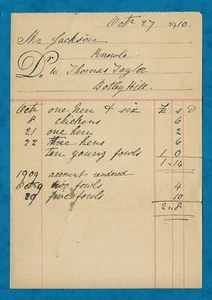 Octr 27 1910.
Mr Jackson
Knowle
Dr to Thomas Taylor
Botley Hill.
£ s d
Octr one hen & six
8 chickens 6
21 one hen 2
22 three hens 6
ten young fowls 1 0
1-14
1909 account rendered
Oct 9 two fowls 4
29 five fowls 10
2-8